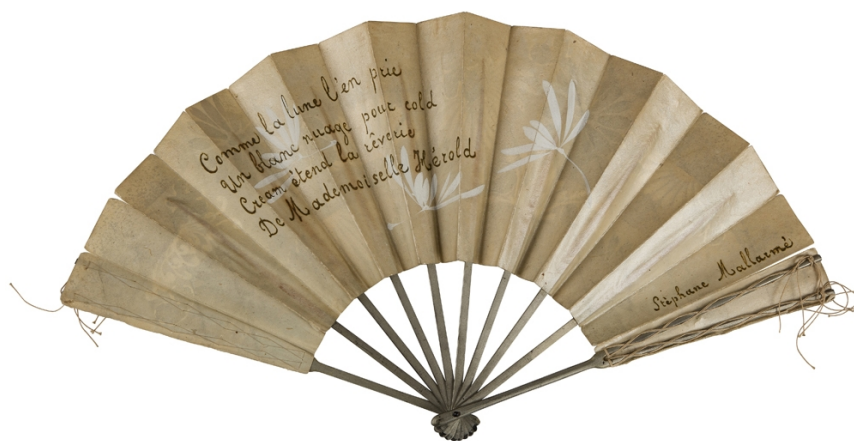 Comme la lune l'en prie
Un blanc nuage pour cold
Cream étend la rêverie
De Mademoiselle Hérold
Stéphane Mallarmé